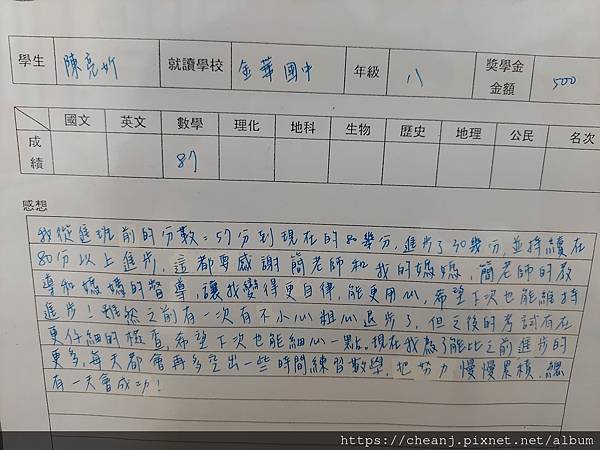 學生 陳亮妡 就讀學校 金華國中 年級 八 獎學金金額 500
國文 英文 數學 理化 地科 生物 歷史 地理 公民 名次
成績 87
感想
我從進班前的分數：57分到現在的80幾分，進步了30幾分，並持續在
80分以上進步，這都要感謝簡老師和我的媽媽，簡老師的教
導和媽媽的督導，讓我變得更自律，能更用心，希望下次也能維持
進步！雖然之前有一次有不小心粗心退步了，但之後的考試有在
更仔細的檢查，希望下次也能細心一點，現在我為了能比之前進步的
更多，每天都會再多空出一些時間練習數學，也努力慢慢累積，總
有一天會成功！
https://cheanj.pixnet.net/album